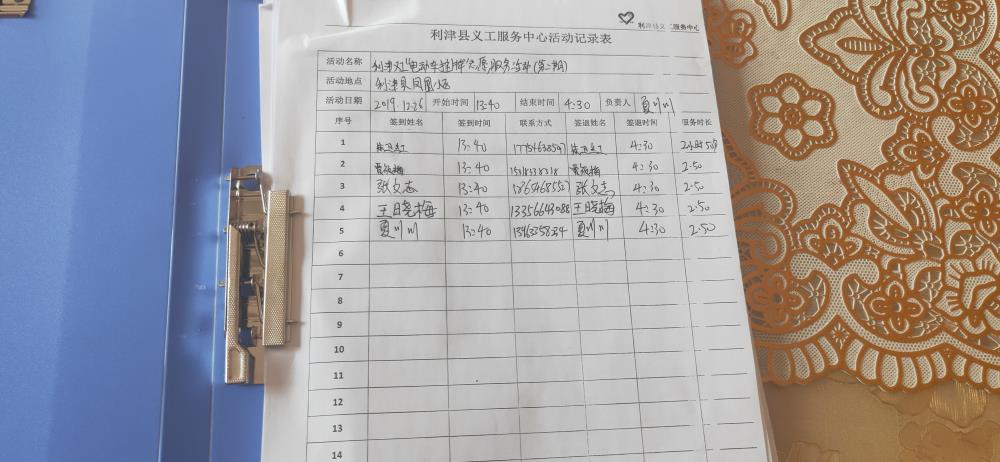 利津县义工服务中心
利津县义工服务中心活动记录表
活动名称 利津义工"电动车挂牌"志愿服务活动(第二期)
活动地点 利津县凤凰
活动日期 2019.12.26 开始时间 13:40 结束时间 4:30 负责人 夏川川
序号 签到姓名 签到时间 联系方式 签退姓名 签退时间 服务时长
1 13:40 4:30 2小时50分
2 13:40 4:30 2:50
3 张文志 13:40 张文志 4:30 2:50
4 王晓梅 13:40 13356643088 王晓梅 4:30 2:50
5 夏川川 13:40 夏川川 4:30 2:50
6
7
8
9
10
11
12
13
14